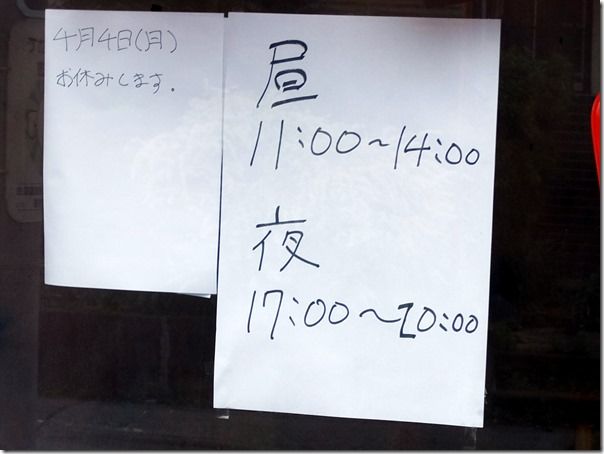 4月4日(月)
お休みします.
昼
11:00～14:00
夜
17:00～20:00